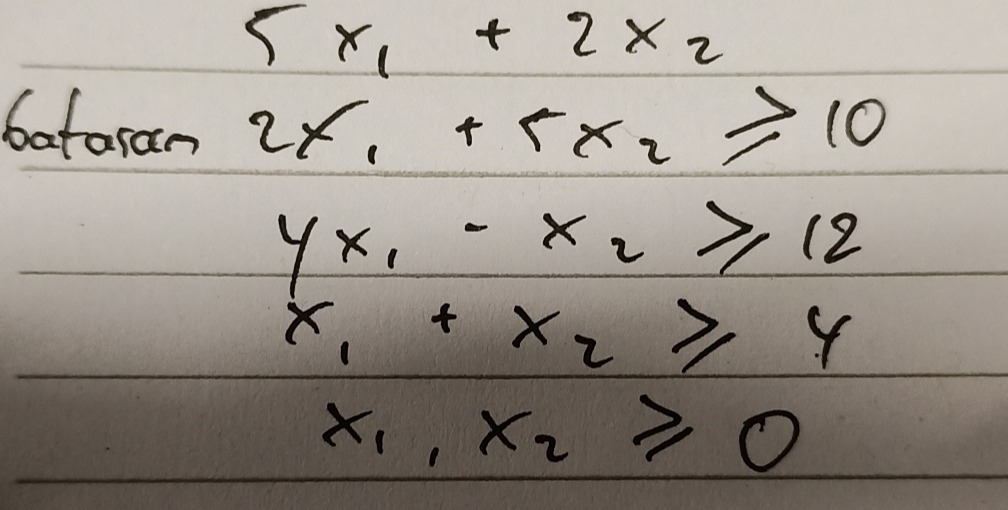 5x₁ + 2x₂
batasan 2x₁ + 5x₂ ≥ 10
4x₁ - x₂ ≥ 12
x₁ + x₂ ≥ 4
x₁, x₂ ≥ 0